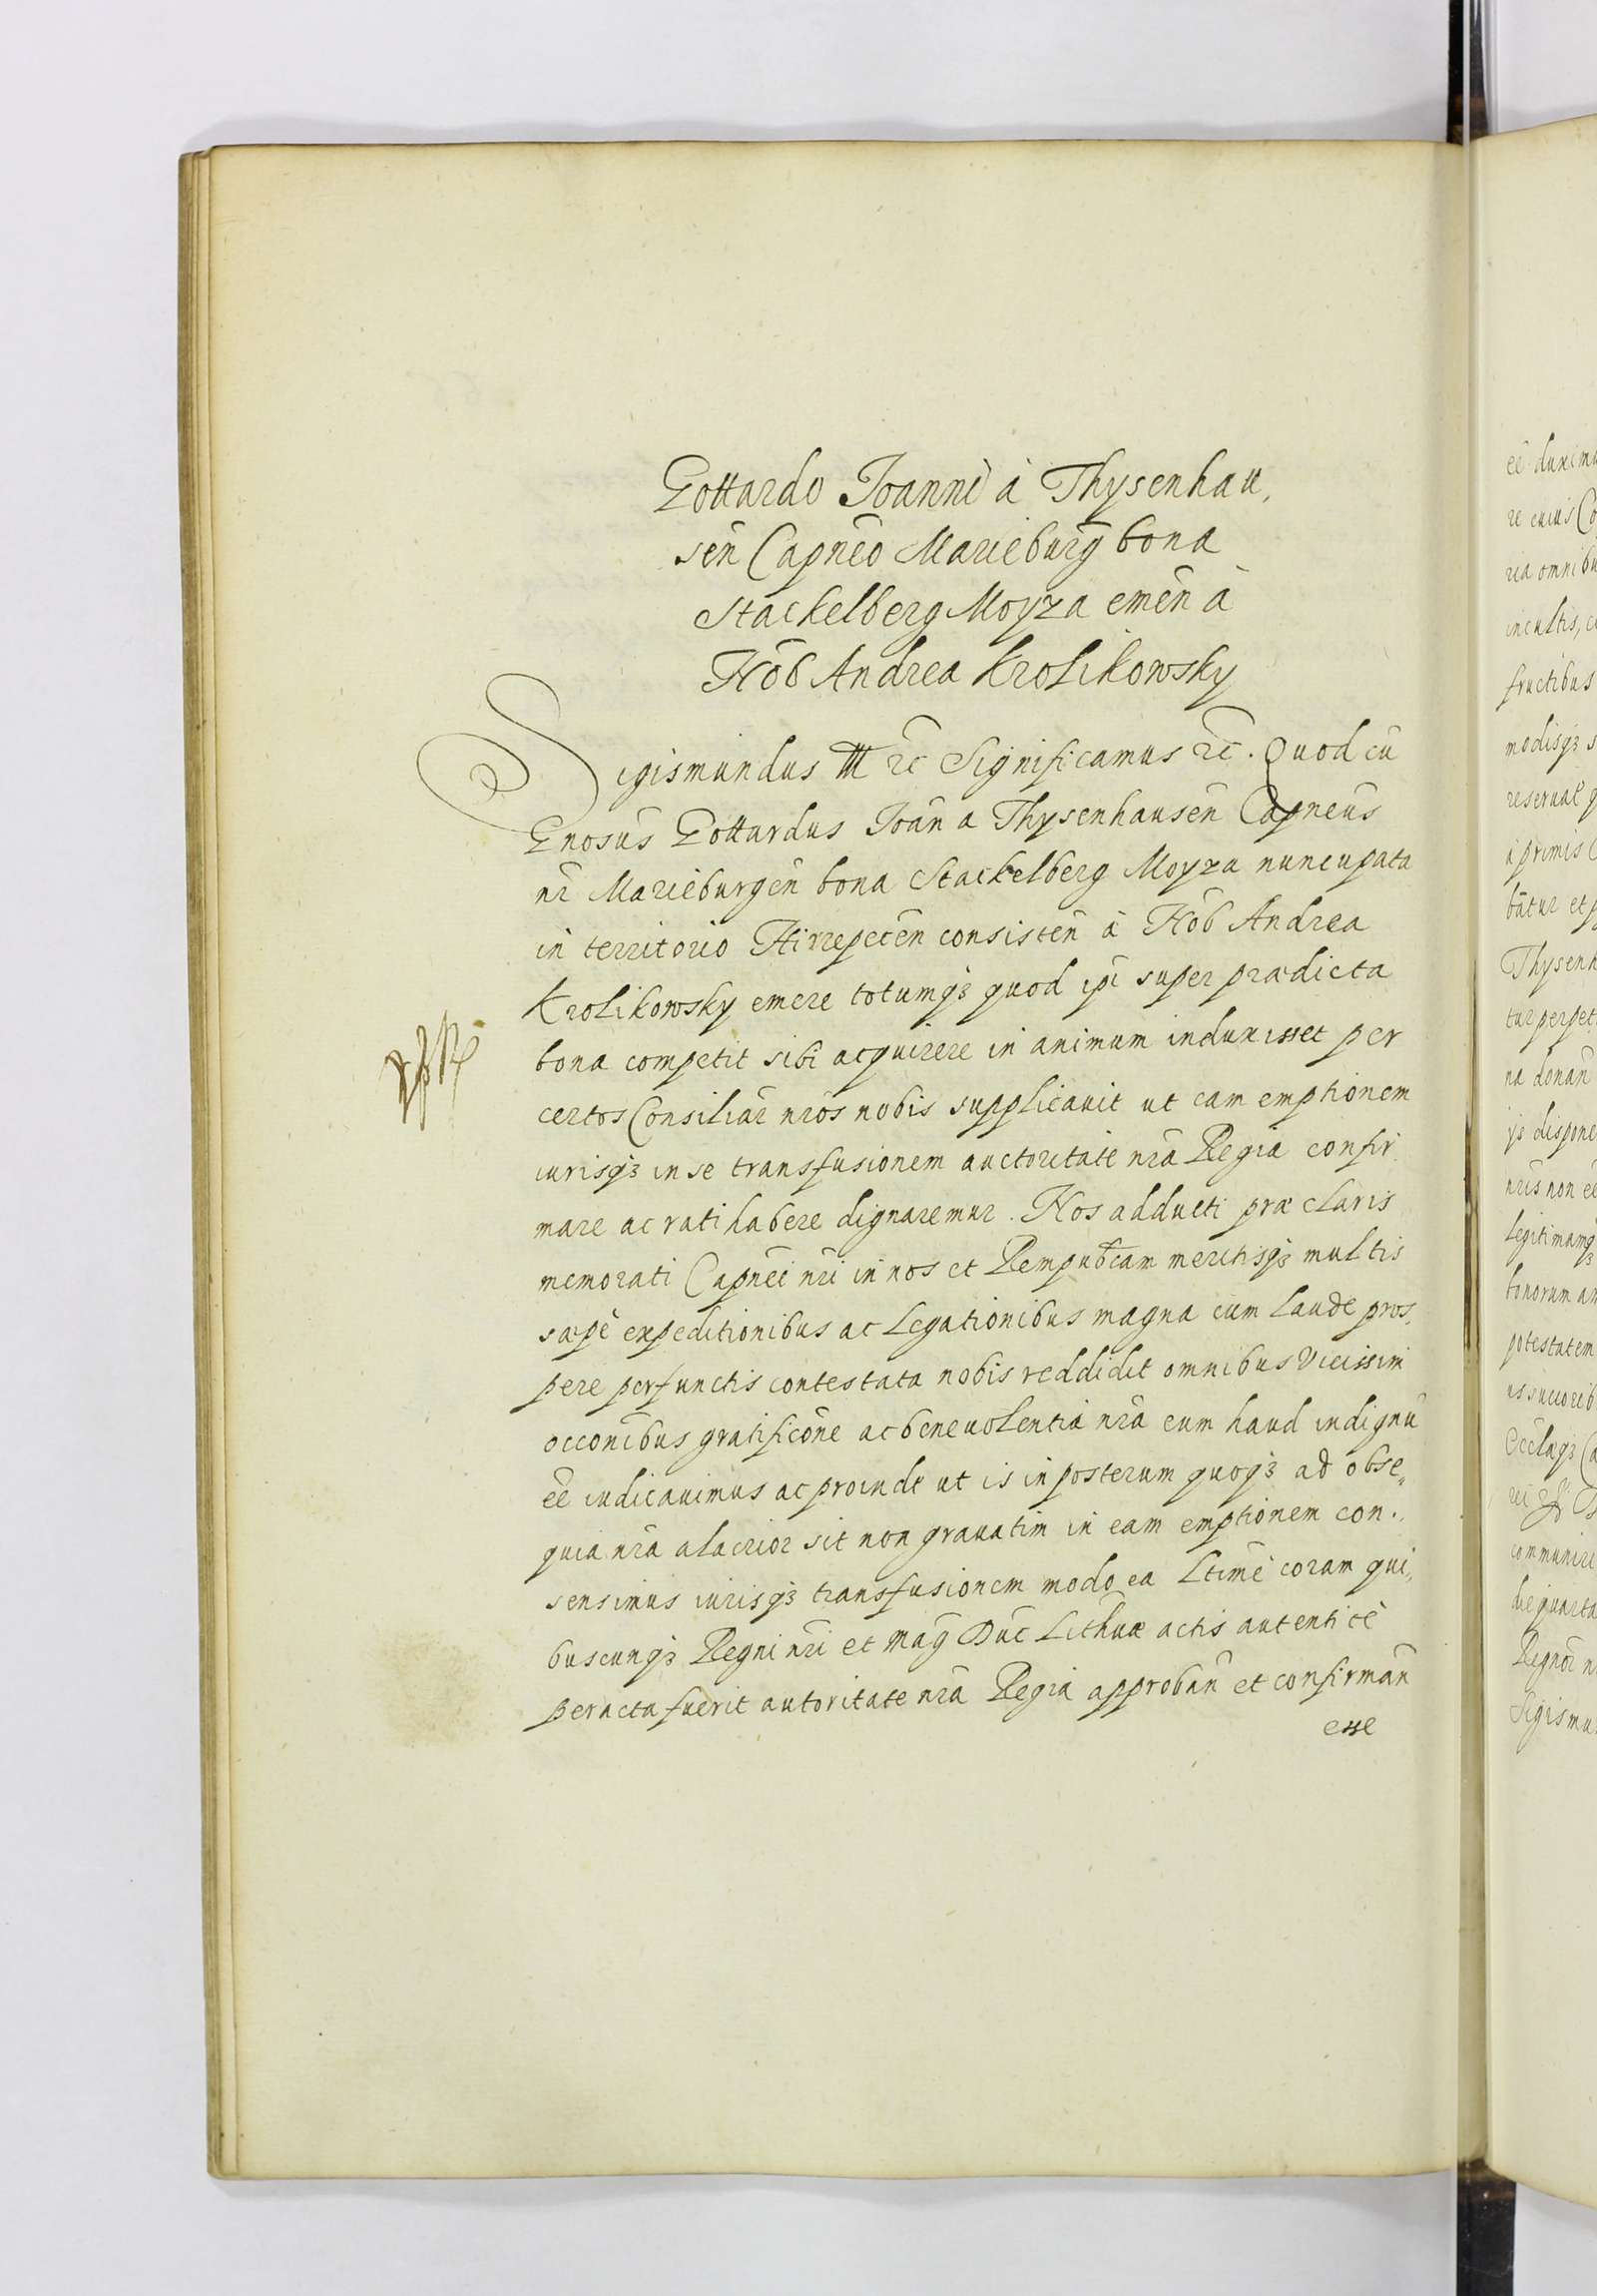 Gottardo Joanni à Thysenhau,
sen Capneo Marieburg bona
Stackelberg Moyza emen à
Nob Andrea Krolikowsky
Sigismundus III etc Significamus etc. Quod cū
Gnosus Gottardus Joān a Thysenhausen Capneus
nr̄ Marieburgen bona Stackelberg Moyza nuncupata
in territorio Hirrepecēn consistēn à Nob Andrea
Krolikowsky emere totumqꝫ quod ipi super prædicta
bona competit sibi acquirere in animum induxisset per
certos Consiliar nr̄os nobis supplicauit ut eam emptionem
iurisqꝫ in se transfusionem auctoritate nr̄a Regia confir
mare ac rati habere dignaremur. Nos adducti præclaris
memorati Capnei nr̄i in nos et Rempubcam meritisqꝫ multis
sæpè expeditionibus ac Legationibus magna cum Laude pros,
pere perfunctis contestata nobis reddidit omnibus vicissim
occonibus gratificōne ac beneuolentia nr̄a eum haud indignū
ēē iudicauimus ac proinde ut is in posterum quoqꝫ ad obse,,
quia nr̄a alacrior sit non grauatim in eam emptionem con.
sensimus iurisqꝫ transfusionem modo ea Ltimè coram qui,
buscunqꝫ Regni nr̄i et Mag Duc Lithuæ actis autenticè
peracta fuerit autoritate nr̄a Regia approbān et confirmān
esse
ēē duxim
re cuius
ria omnib
incultis,
fructibus
modisqꝫ
reseruat
à primis
bātur et
Thysenh
tur perpet
na donān
ijs dispone
nr̄is non ēē
legitimamqꝫ
bonorum
potestatem
communire
die quarta
Sigismu